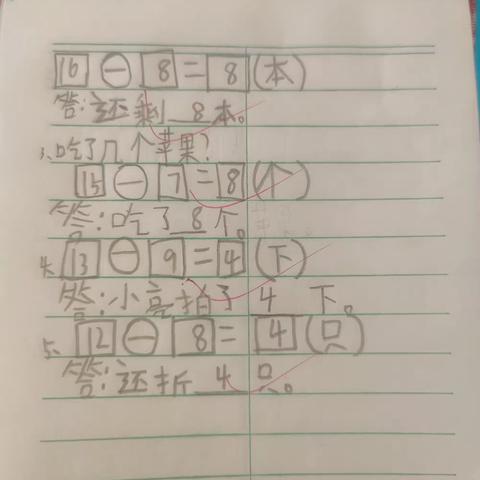 16 - 8 = 8 (本)
答:还剩 8 本。
3、吃了几个苹果?
15 - 7 = 8 (个)
答:吃了 8 个。
4、13 - 9 = 4 (下)
答:小亮拍了 4 下。
5、12 - 8 = 4 (只)
答:还折 4 只。